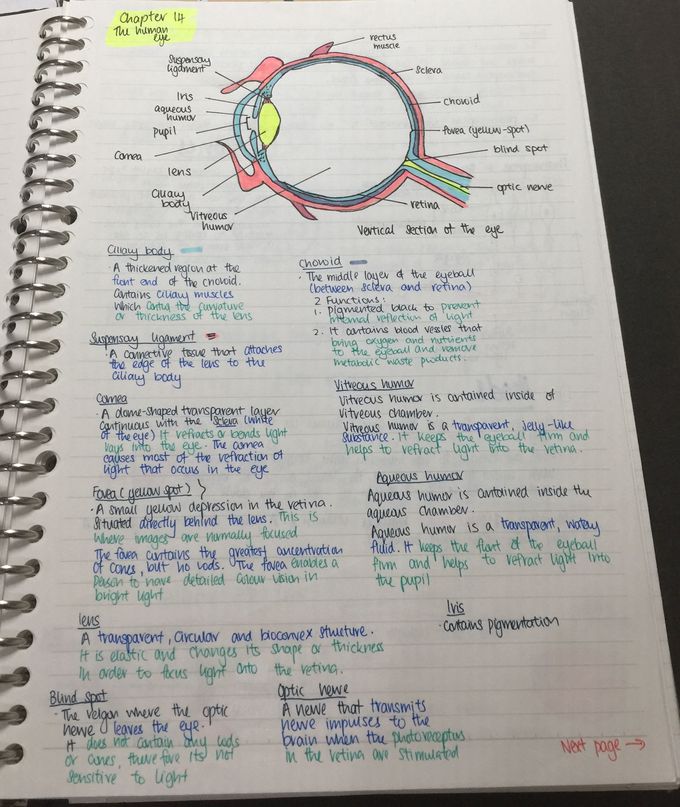 Chapter 14
The human
eye
rectus
muscle
Suspensory
ligament
Sclera
Iris
choroid
aqueous
humor
pupil
fovea (yellow-spot)
blind spot
Cornea
lens
optic nerve
Ciliary
body
Vitreous
humor
retina
Vertical section of the eye
Ciliary body
· A thickened region at the
front end of the choroid.
Contains ciliary muscles
which control the curvature
or thickness of the lens
Suspensory ligament
· A connective tissue that attaches
the edge of the lens to the
ciliary body
Cornea
· A dome-shaped transparent layer
continuous with the sclera (white
of the eye) It refracts or bends light
rays into the eye. The cornea
causes most of the refraction of
light that occurs in the eye
Fovea (yellow spot)
· A small yellow depression in the retina.
Situated directly behind the lens. This is
where images are normally focused
The fovea contains the greatest concentration
of cones, but no rods. The fovea enables a
person to have detailed colour vision in
bright light
Choroid
· The middle layer of the eyeball
(between sclera and retina)
2 Functions:
1. pigmented black to prevent
internal reflection of light
2. It contains blood vessles that
bring oxygen and nutrients
to the eyeball and remove
metabolic waste products.
Vitreous humor
Vitreous humor is contained inside of
vitreous chamber.
Vitreous humor is a transparent, jelly-like
substance. It keeps the eyeball firm and
helps to refract light into the retina.
Aqueous humor
Aqueous humor is contained inside the
aqueous chamber.
Aqueous humor is a transparent, watery
fluid. It keeps the front of the eyeball
firm and helps to refract light into
the pupil
Iris
· contains pigmentation
lens
A transparent, circular and bioconvex structure.
It is elastic and changes its shape or thickness
in order to focus light onto the retina.
Blind spot
· The reigon where the optic
nerve leaves the eye.
It does not contain any rods
or cones, therefore its not
sensitive to light
Optic nerve
A nerve that transmits
nerve impulses to the
brain when the photoreceptors
in the retina are stimulated
Next page →